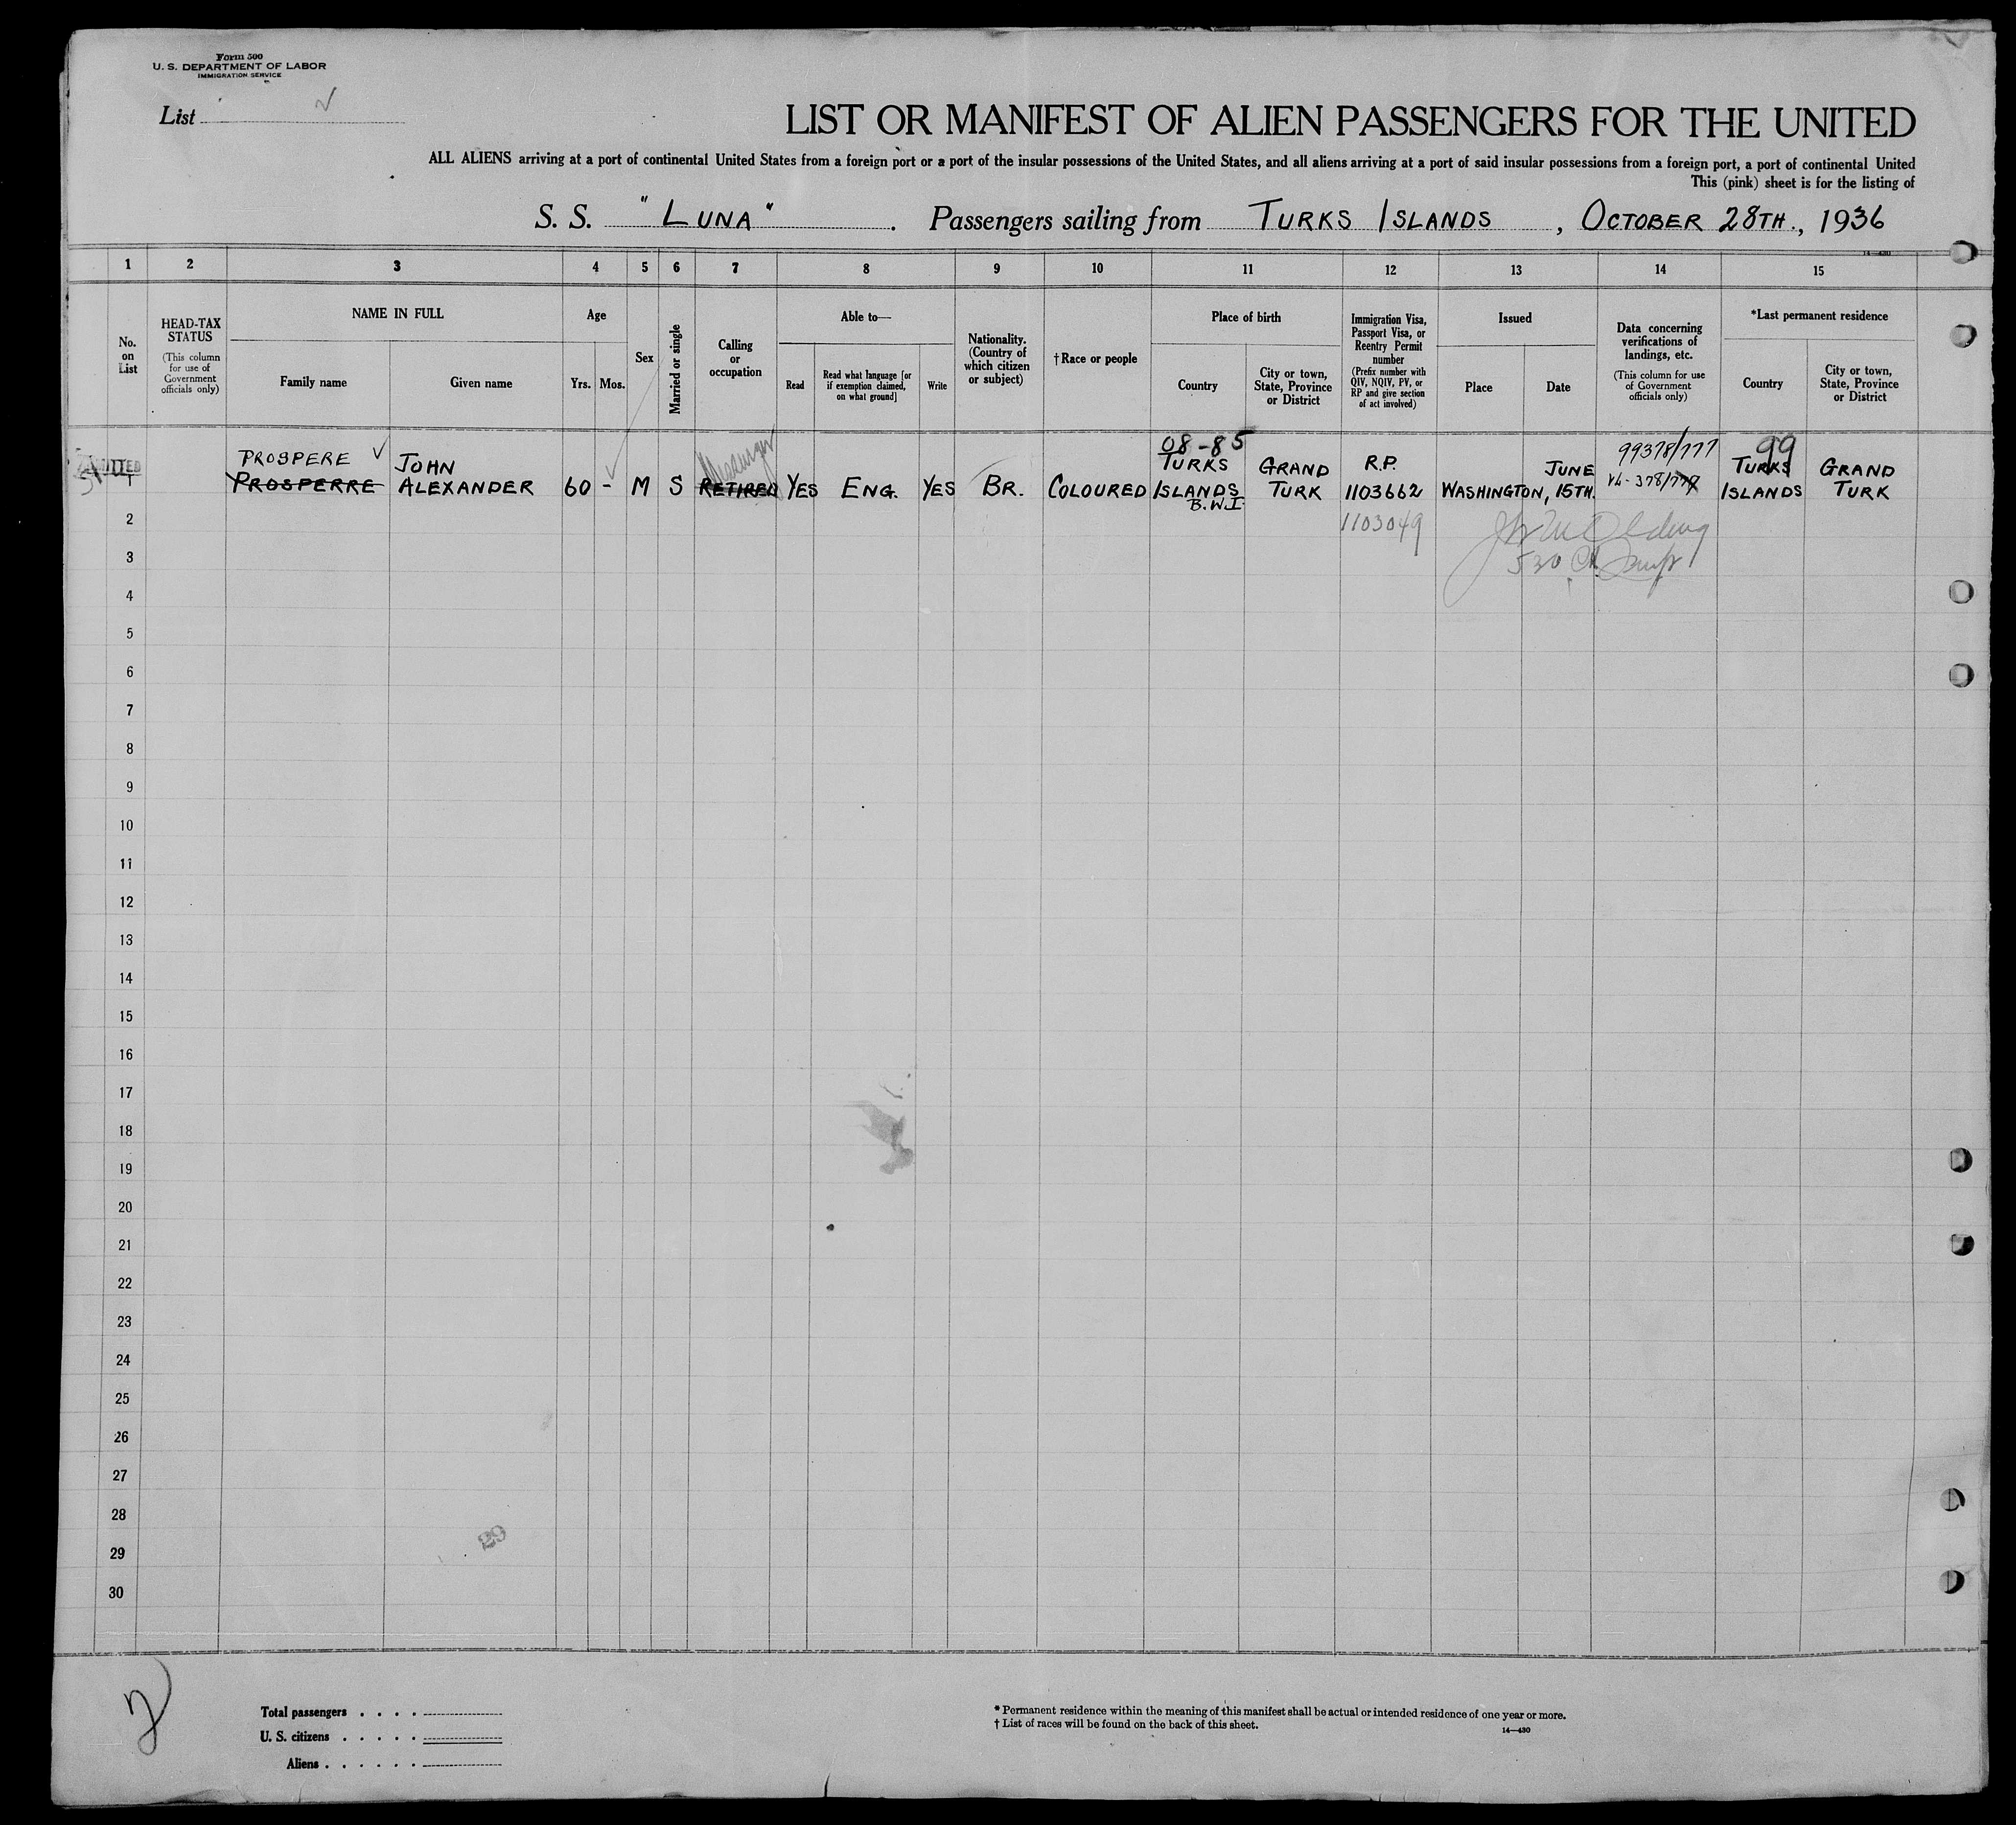 Form 500
U. S. DEPARTMENT OF LABOR
IMMIGRATION SERVICE
List
LIST OR MANIFEST OF ALIEN PASSENGERS FOR THE UNITED
ALL ALIENS arriving at a port of continental United States from a foreign port or a port of the insular possessions of the United States, and all aliens arriving at a port of said insular possessions from a foreign port, a port of continental United
This (pink) sheet is for the listing of
S. S. "LUNA". Passengers sailing from TURKS ISLANDS, OCTOBER 28TH., 1936
14—430
1 2 3 4 5 6 7 8 9 10 11 12 13 14 15
No. on List
HEAD-TAX STATUS
(This column for use of Government officials only)
NAME IN FULL
Family name
Given name
Age
Yrs.
Mos.
Sex
Married or single
Calling or occupation
Able to—
Read
Read what language [or if exemption claimed, on what ground]
Write
Nationality. (Country of which citizen or subject)
†Race or people
Place of birth
Country
City or town, State, Province or District
Immigration Visa, Passport Visa, or Reentry Permit number
(Prefix number with QIV, NQIV, PV, or RP and give section of act involved)
Issued
Place
Date
Data concerning verifications of landings, etc.
(This column for use of Government officials only)
*Last permanent residence
Country
City or town, State, Province or District
08-85
99378/777
99
PROSPERE JOHN TURKS GRAND R.P. JUNE TURKS GRAND
1 PROSPERRE ALEXANDER 60 - M S RETIRED YES ENG. YES BR. COLOURED ISLANDS TURK 1103662 WASHINGTON, 15TH. ISLANDS TURK
B.W.I.
2 1103049
3
4
5
6
7
8
9
10
11
12
13
14
15
16
17
18
19
20
21
22
23
24
25
26
27
28
29
29
30
2
Total passengers . . . .
U. S. citizens . . . . .
Aliens . . . . . .
* Permanent residence within the meaning of this manifest shall be actual or intended residence of one year or more.
† List of races will be found on the back of this sheet.
14—430